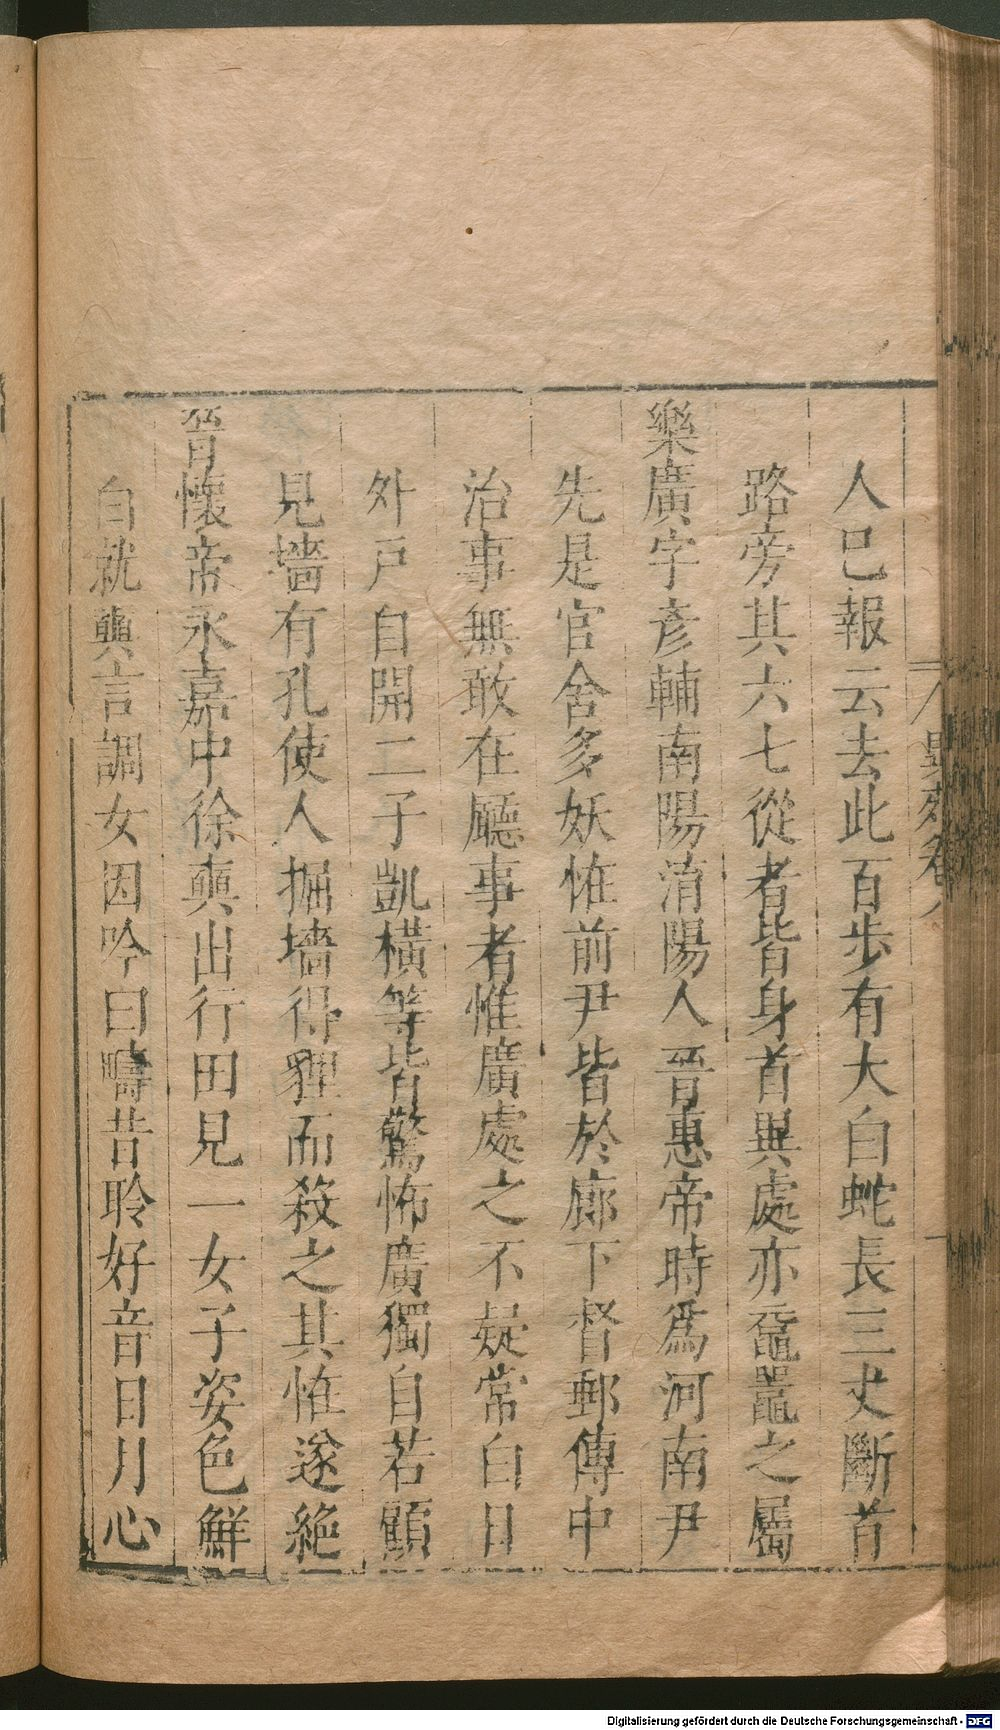 人巳報云去此百步有大白蛇長三丈斷首
路旁其六七從者皆身首異處亦黿鼉之屬
樂廣字彥輔南陽淯陽人晉惠帝時爲河南尹
先是官舍多妖恠前尹皆於廊下督郵傳中
治事無敢在廳事者惟廣處之不疑常白日
外戸自開二子凱橫等皆驚怖廣獨自若顧
見墻有孔使人掘墻得貍而殺之其恠遂絶
晉懷帝永嘉中徐奭出行田見一女子姿色鮮
白就奭言調女因吟曰疇昔聆好音日月心
異苑卷八
Digitalisierung gefördert durch die Deutsche Forschungsgemeinschaft - DFG